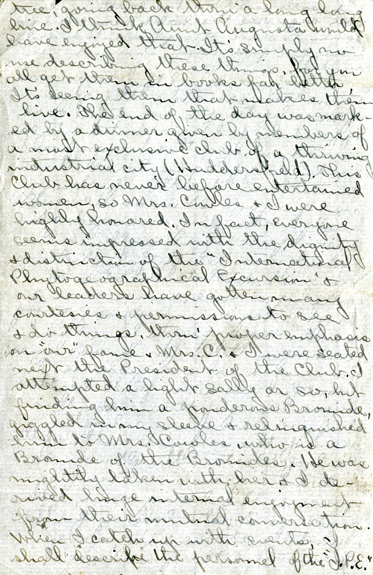 tree going back thro' a long long
line. I think Aunt Augusta would
have enjoyed that. It's simply no
use describing these things, for you
all get them in books far better
It's seeing them that makes them
live. The end of the day was mark-
ed by a dinner given by members of
a most exclusive club of a thriving
industrial city (Huddersfield). This
Club has never before entertained
women, so Mrs. Cowles & I were
highly honored. In fact, everyone
seems impressed with the dignity
& distinction of the "International
Phytogeographical Excursion" &
our leaders have gotten many
courtesies & permissions to see
& do things, thro' proper emphasis
on "our" fame. Mrs. C. & I were seated
next the President of the Club. I
attempted a light sally or so, but
finding him a ponderous Bromide,
giggled in my sleeve & relinquished
him to Mrs. Cowles who is a
Bromide of the Bromides. He was
mightily taken with her & I de-
rived huge internal enjoyment
from their mutual conversation.
When I catch up with events, I
shall describe the personnel of the "I.P.E."